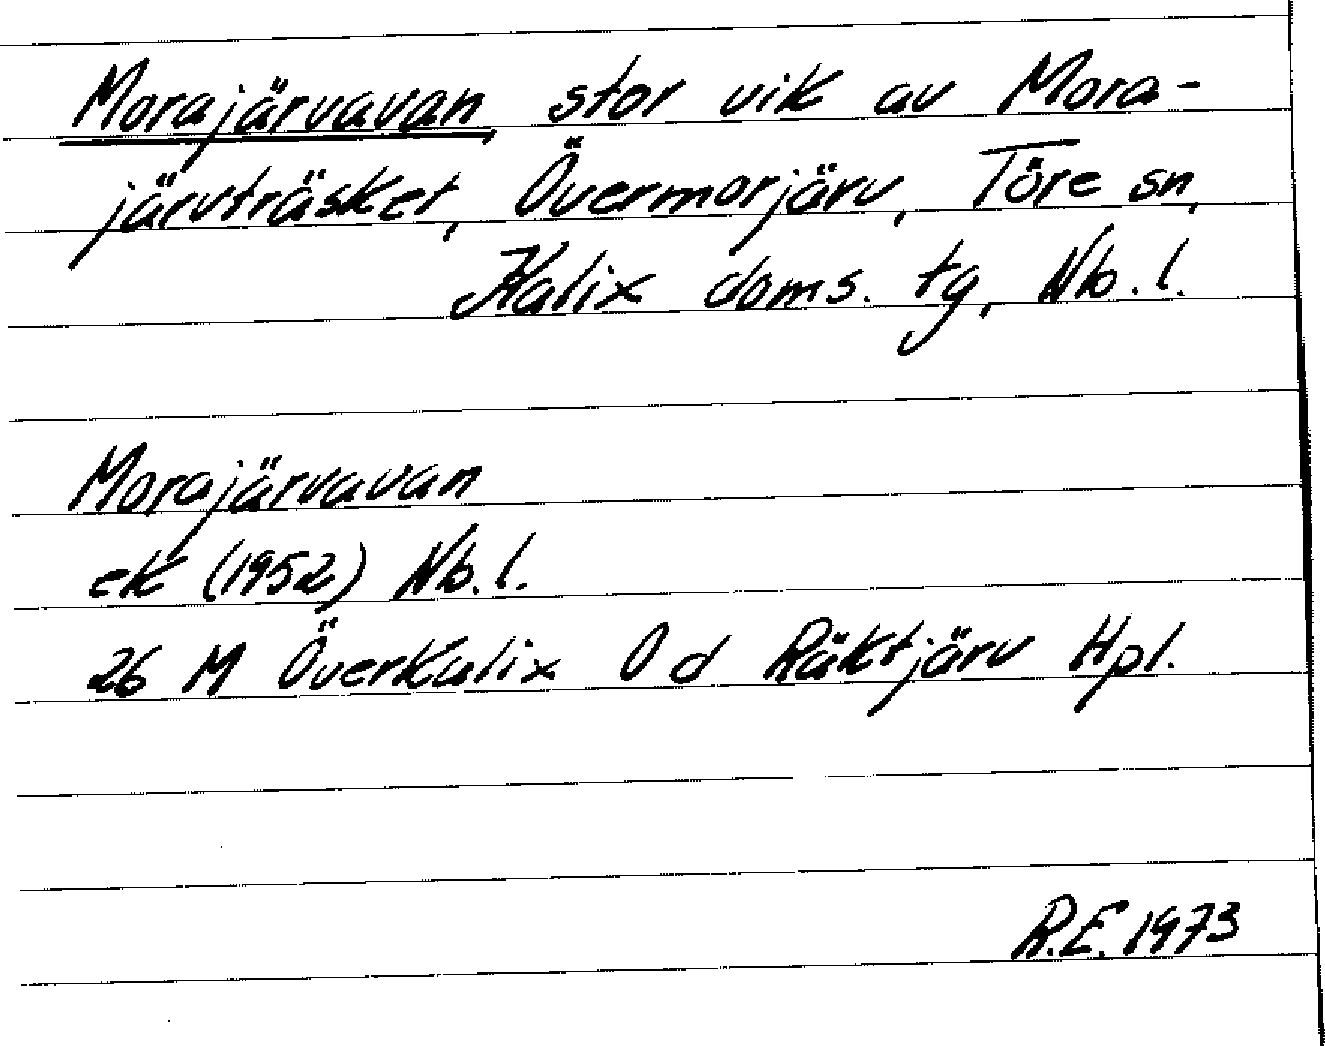 Morajärvavan, stor vik av Mora-
järvträsket, Övermorjärv, Töre sn,
Kalix doms. tg, Nb.l.
Morajärvavan
ek (1952) Nb.l.
26 M Överkalix 0 d Räktjärv Hpl.
R.E. 1973